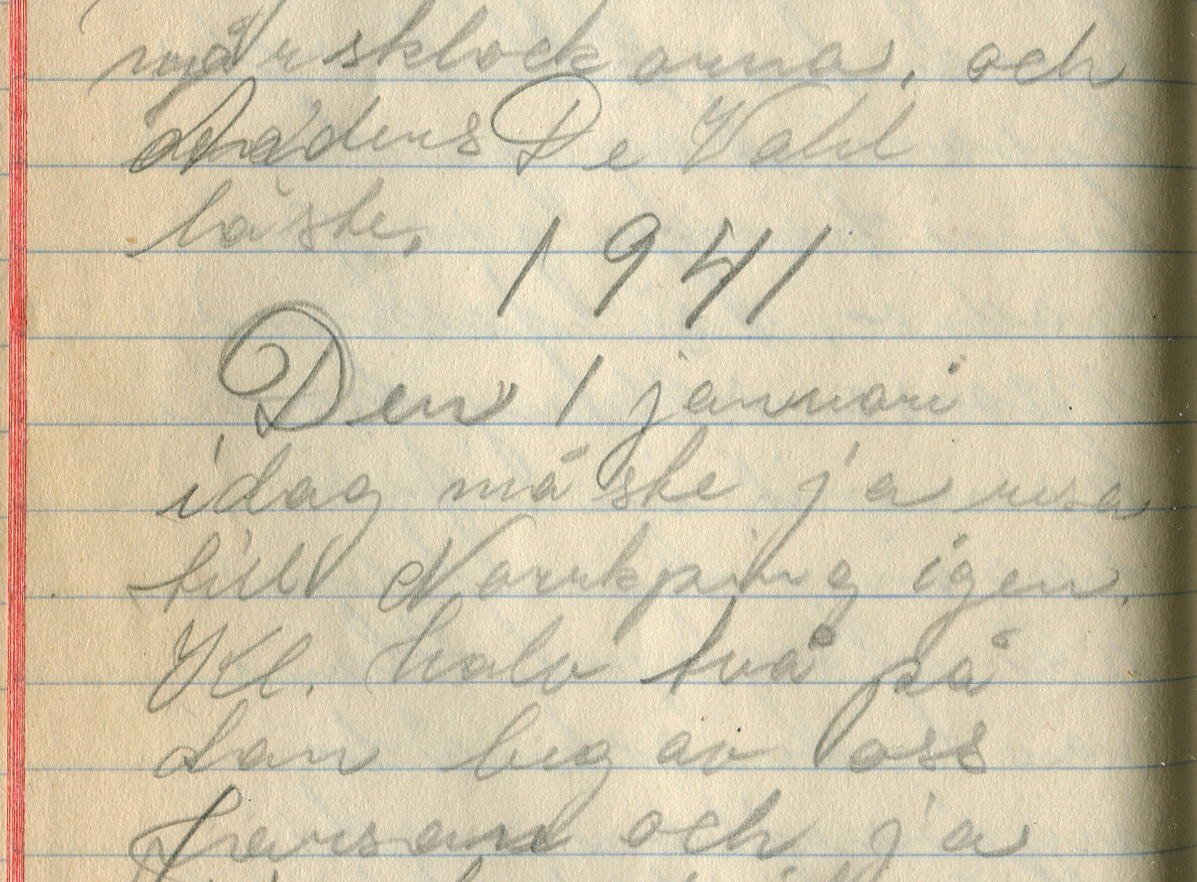 nyårsklockorna, och
Anders De Vahl
läste,
1941
Den 1 januari
idag måste ja resa
till Norrkping igen.
Kl. halv två på
dan begav oss
farsan och ja